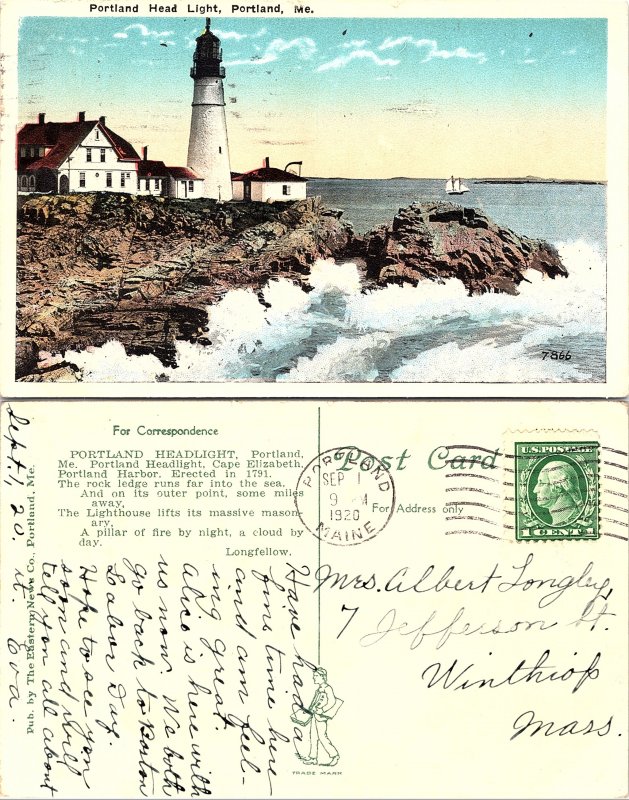 Portland Head Light, Portland, Me.
7866
For Correspondence
PORTLAND HEADLIGHT, Portland,
Me. Portland Headlight, Cape Elizabeth,
Portland Harbor. Erected in 1791.
The rock ledge runs far into the sea,
And on its outer point, some miles
away,
The Lighthouse lifts its massive mason-
ary,
A pillar of fire by night, a cloud by
day.
Longfellow.
Pub. by The Eastern News Co., Portland, Me.
Sept. 1, 20
Have had a
fine time here
and am feel-
ing great.
Alice is here with
us now. We both
go back to Boston
Labor Day.
Hope to see you
soon and will
tell you all about
it. Eva.
TRADE MARK
Post Card
For Address only
PORTLAND
SEP 1
9 A
1920
MAINE
U.S. POSTAGE
1 CENT 1
Mrs. Albert Longley,
7 Jefferson St.
Winthrop
Mass.